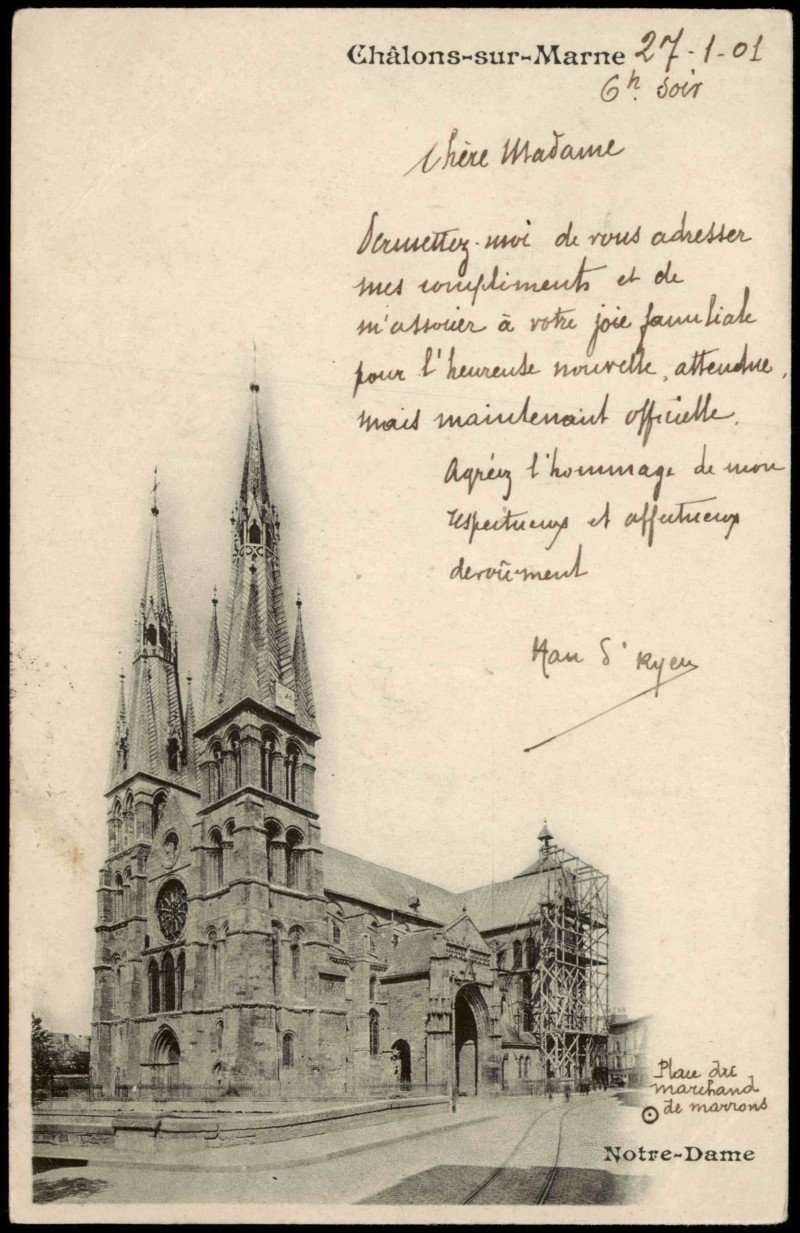 Châlons-sur-Marne 27-1-01
6h. soir
Chère Madame
Permettez-moi de vous adresser
mes compliments et de
m'associer à votre joie familiale
pour l'heureuse nouvelle, attendue,
mais maintenant officielle.
Agréez l'hommage de mon
respectueux et affectueux
dévouement
Han d'Ryen
Place du
marchand
de marrons
Notre-Dame